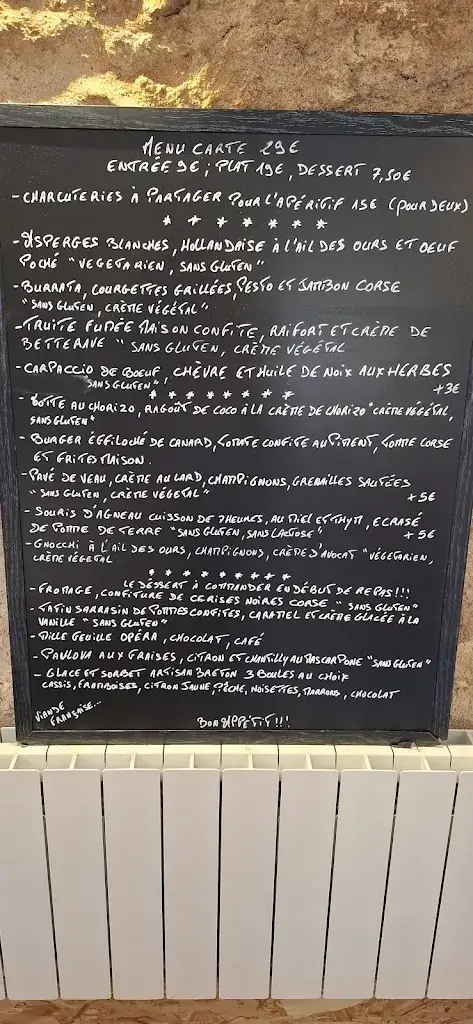 MENU CARTE 29€
ENTRÉE 9€ ; PLAT 19€, DESSERT 7,50€
- CHARCUTERIES À PARTAGER POUR L'APÉRITIF 15€ (POUR DEUX)
* * * * * * *
- ASPERGES BLANCHES, HOLLANDAISE À L'AIL DES OURS ET OEUF
POCHÉ "VEGETARIEN, SANS GLUTEN"
- BURRATA, COURGETTES GRILLÉES, PESTO ET JAMBON CORSE
"SANS GLUTEN, CRÈME VÉGÉTAL"
- TRUITE FUMÉE MAISON CONFITE, RAIFORT ET CRÈME DE
BETTERAVE "SANS GLUTEN, CRÈME VÉGÉTAL
- CARPACCIO DE BOEUF, CHÈVRE ET HUILE DE NOIX AUX HERBES
"SANS GLUTEN" +3€
* * * * * * * *
- LOTTE AU CHORIZO, RAGOÛT DE COCO À LA CRÈME DE CHORIZO "CRÈME VÉGÉTAL,
SANS GLUTEN"
- BURGER EFFILOCHÉ DE CANARD, TOMATE CONFITE AU PIMENT, TOMME CORSE
ET FRITES MAISON.
- PAVÉ DE VEAU, CRÈME AU LARD, CHAMPIGNONS, GRENAILLES SAUTÉES
"SANS GLUTEN, CRÈME VÉGÉTAL" +5€
- SOURIS D'AGNEAU CUISSON DE 7HEURES, AU MIEL ET THYM, ECRASÉ
DE POMME DE TERRE "SANS GLUTEN, SANS LACTOSE" +5€
- GNOCCHI À L'AIL DES OURS, CHAMPIGNONS, CRÈME D'AVOCAT "VÉGÉTARIEN,
CRÈME VÉGÉTAL
* * * * * * * * *
LE DÉSSERT À COMMANDER EN DÉBUT DE REPAS!!!
- FROMAGE, CONFITURE DE CERISES NOIRES CORSE "SANS GLUTEN"
- TATIN SARRASIN DE POMMES CONFITES, CARAMEL ET CRÈME GLACÉE À LA
VANILLE "SANS GLUTEN"
- MILLE FEUILLE OPÉRA, CHOCOLAT, CAFÉ
- PAVLOVA AUX FRAISES, CITRON ET CHANTILLY AU MASCARPONE "SANS GLUTEN"
- GLACE ET SORBET ARTISAN BRETON 3 BOULES AU CHOIX
CASSIS, FRAMBOISES, CITRON JAUNE, PÊCHE, NOISETTES, MARRONS, CHOCOLAT
VIANDE
FRANÇAISE...
BON APPÉTIT!!!